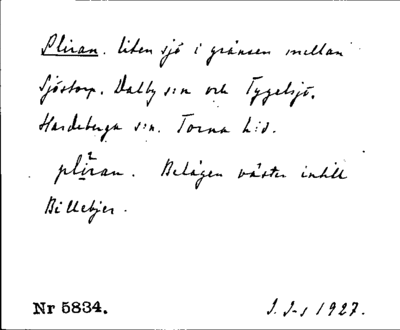 Pliran. liten sjö i gränsen mellan
Sjöstorp, Dalby s:n och Tygelsjö,
Hardeberga s:n. Torna h:d.
plíran. Belägen väster intill
Billebjer.
Nr 5834.
J. I-s 1927.